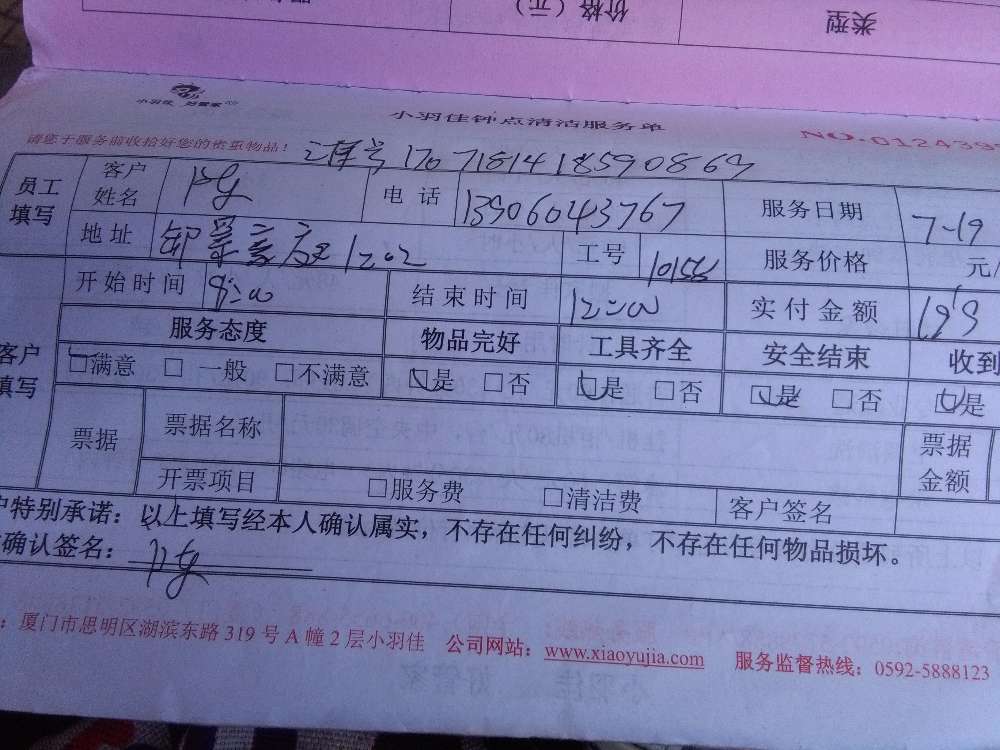 价格（元）
类型
小羽佳 好管家
小羽佳钟点清洁服务单
请您于服务前收拾好您的贵重物品！
NO.012439
17071814185908
员工填写
客户姓名
电话 13906043767
服务日期 7-19
地址 1202
工号
服务价格 元/
客户填写
开始时间
结束时间 12:00
实付金额 199
服务态度 物品完好 工具齐全 安全结束 收到
□满意 □ 一般 □不满意 □是 □否 □是 □否 □是 □否 □是
票据 票据名称 票据金额
开票项目 □服务费 □清洁费 客户签名
户特别承诺：以上填写经本人确认属实，不存在任何纠纷，不存在任何物品损坏。
确认签名：
：厦门市思明区湖滨东路 319 号 A 幢 2 层小羽佳 公司网站：www.xiaoyujia.com 服务监督热线：0592-5888123